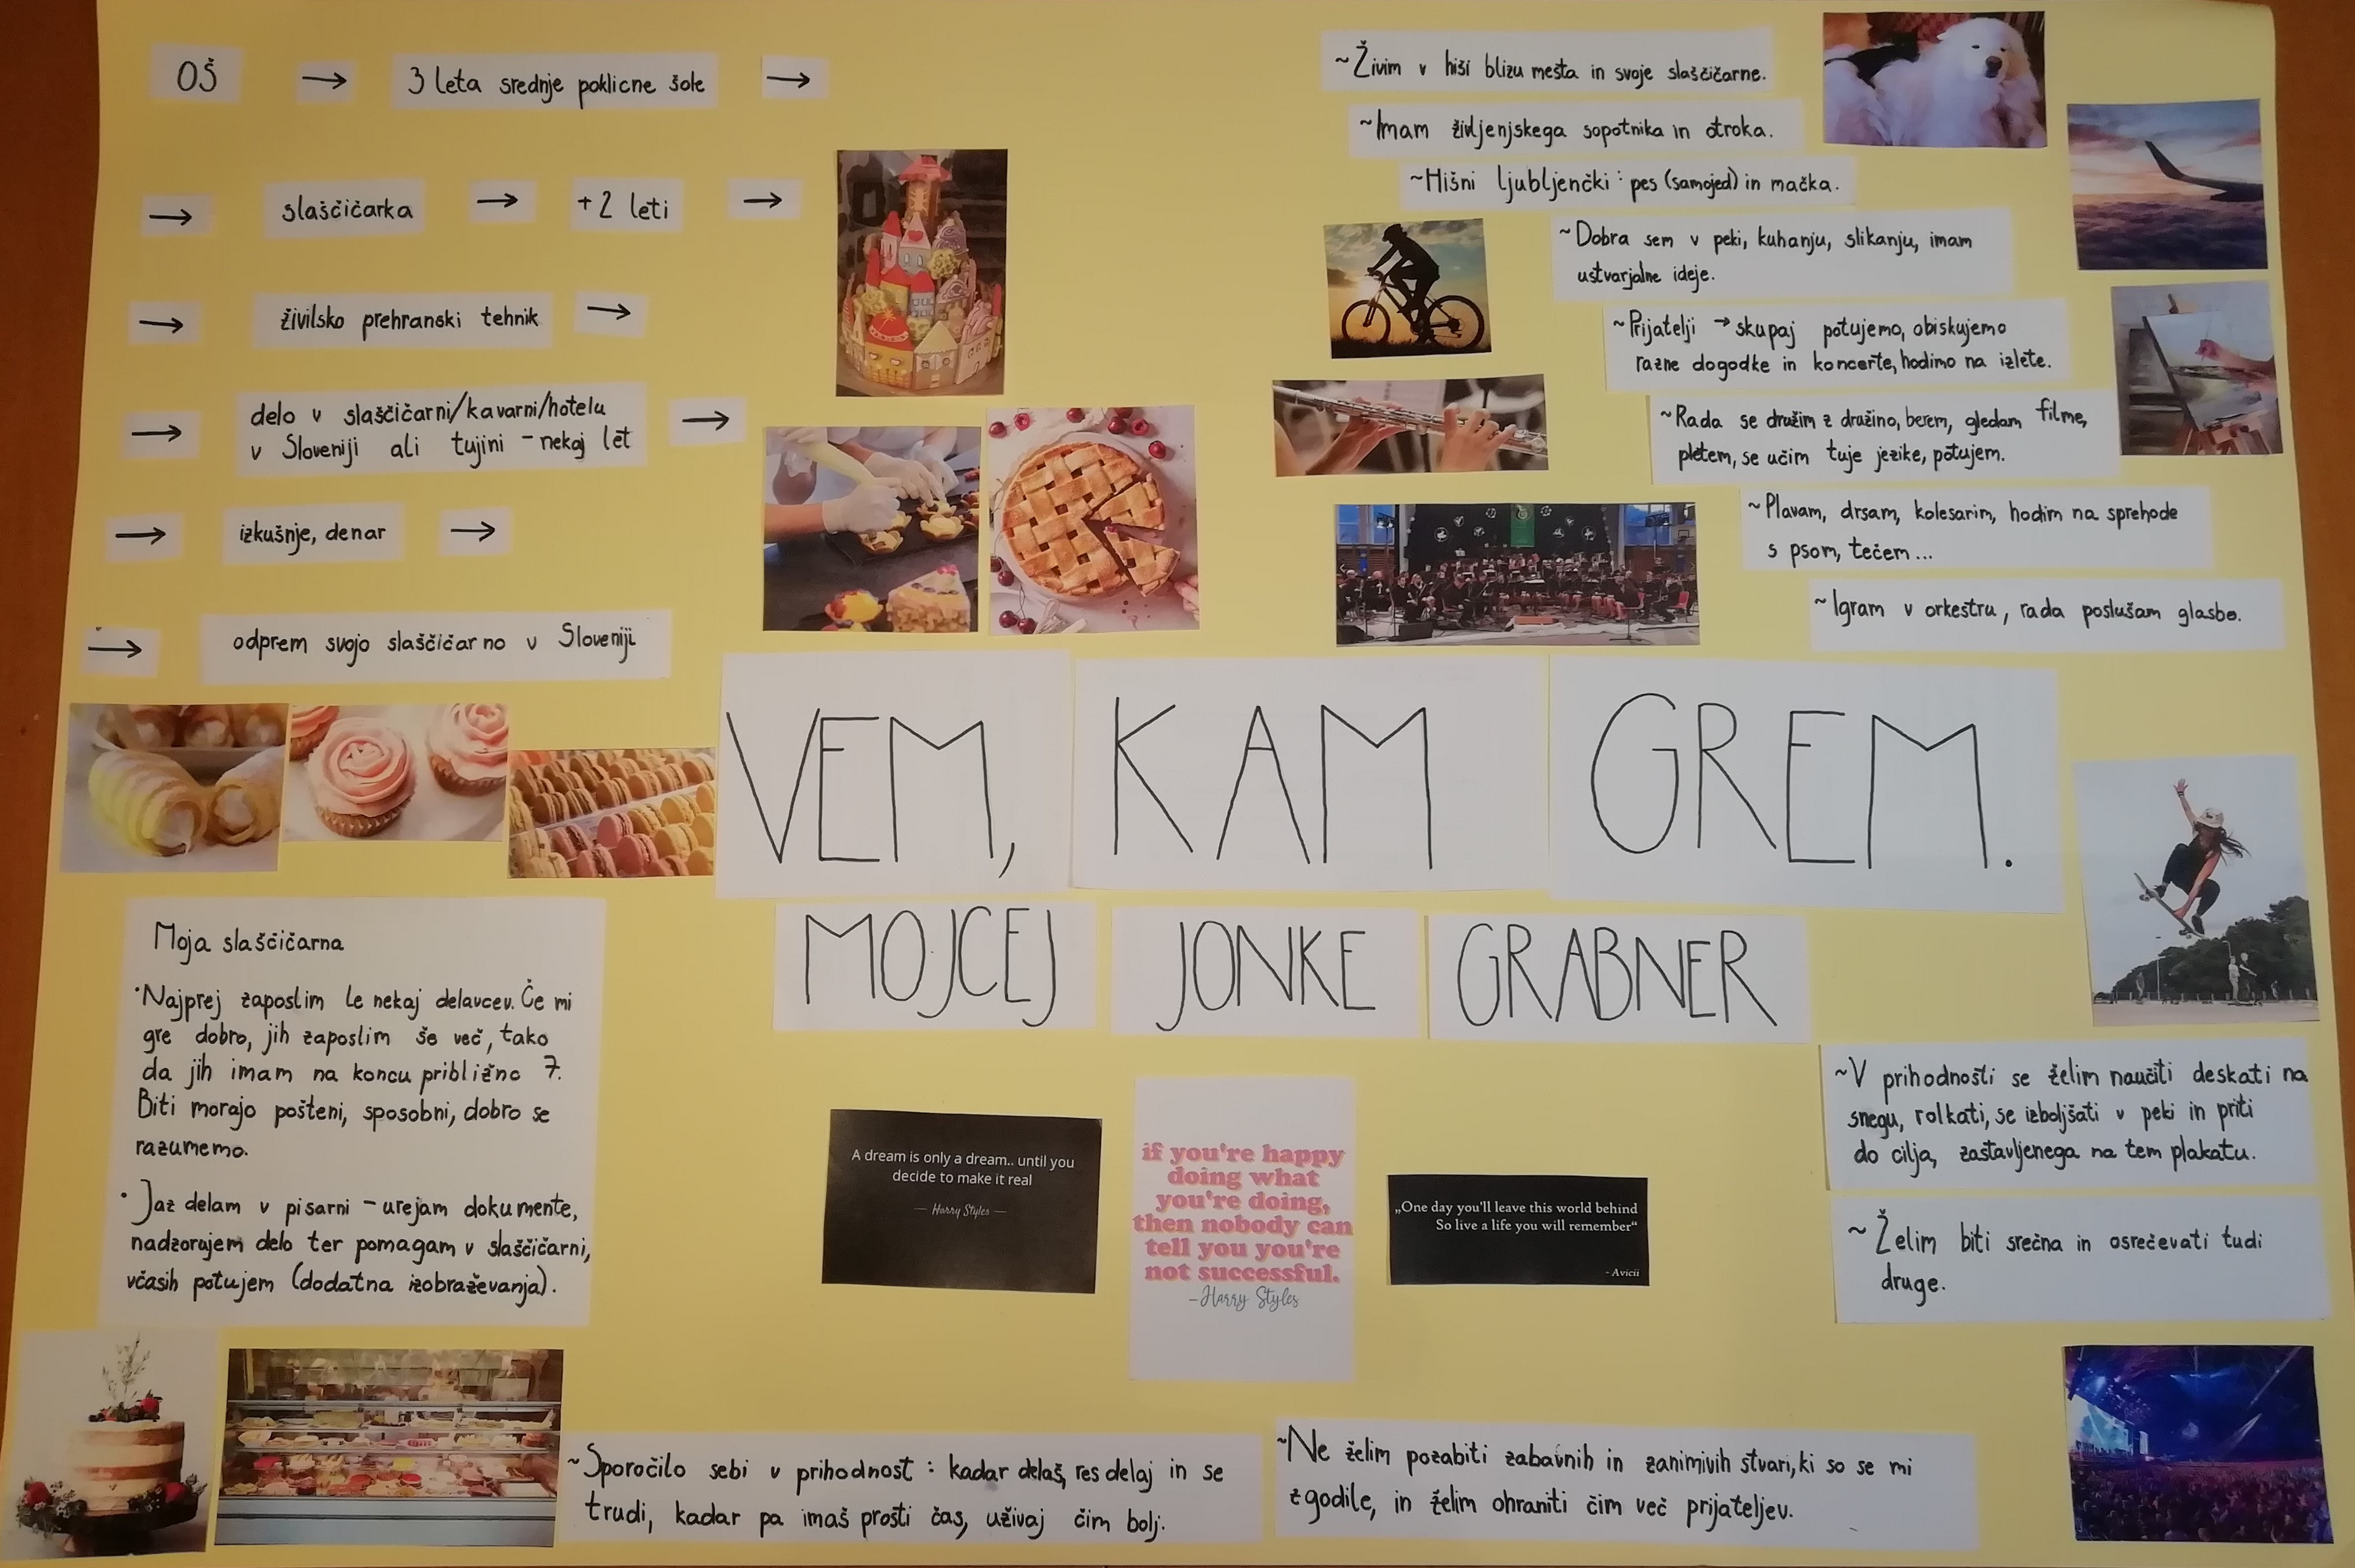 OŠ → 3 leta srednje poklicne šole →
→ slaščičarka → +2 leti →
→ živilsko prehranski tehnik →
→ delo v slaščičarni/kavarni/hotelu
v Sloveniji ali tujini - nekaj let →
→ izkušnje, denar →
→ odprem svojo slaščičarno v Sloveniji
~Živim v hiši blizu mesta in svoje slaščičarne.
~Imam življenjskega sopotnika in otroka.
~Hišni ljubljenčki: pes (samojed) in mačka.
~Dobra sem v peki, kuhanju, slikanju, imam
ustvarjalne ideje.
~Prijatelji → skupaj potujemo, obiskujemo
razne dogodke in koncerte, hodimo na izlete.
~Rada se družim z družino, berem, gledam filme,
pletem, se učim tuje jezike, potujem.
~Plavam, drsam, kolesarim, hodim na sprehode
s psom, tečem...
~Igram v orkestru, rada poslušam glasbo.
VEM, KAM GREM.
MOJCEJ JONKE GRABNER
Moja slaščičarna
•Najprej zaposlim le nekaj delavcev. Če mi
gre dobro, jih zaposlim še več, tako
da jih imam na koncu približno 7.
Biti morajo pošteni, sposobni, dobro se
razumemo.
•Jaz delam v pisarni - urejam dokumente,
nadzorujem delo ter pomagam v slaščičarni,
včasih potujem (dodatna izobraževanja).
A dream is only a dream.. until you
decide to make it real
— Harry Styles —
if you're happy
doing what
you're doing,
then nobody can
tell you you're
not successful.
-Harry Styles
„One day you'll leave this world behind
So live a life you will remember“
- Avicii
~V prihodnosti se želim naučiti deskati na
snegu, rolkati, se izboljšati v peki in priti
do cilja, zastavljenega na tem plakatu.
~Želim biti srečna in osrečevati tudi
druge.
~Sporočilo sebi v prihodnost: kadar delaš, res delaj in se
trudi, kadar pa imaš prosti čas, uživaj čim bolj.
~Ne želim pozabiti zabavnih in zanimivih stvari, ki so se mi
zgodile, in želim ohraniti čim več prijateljev.